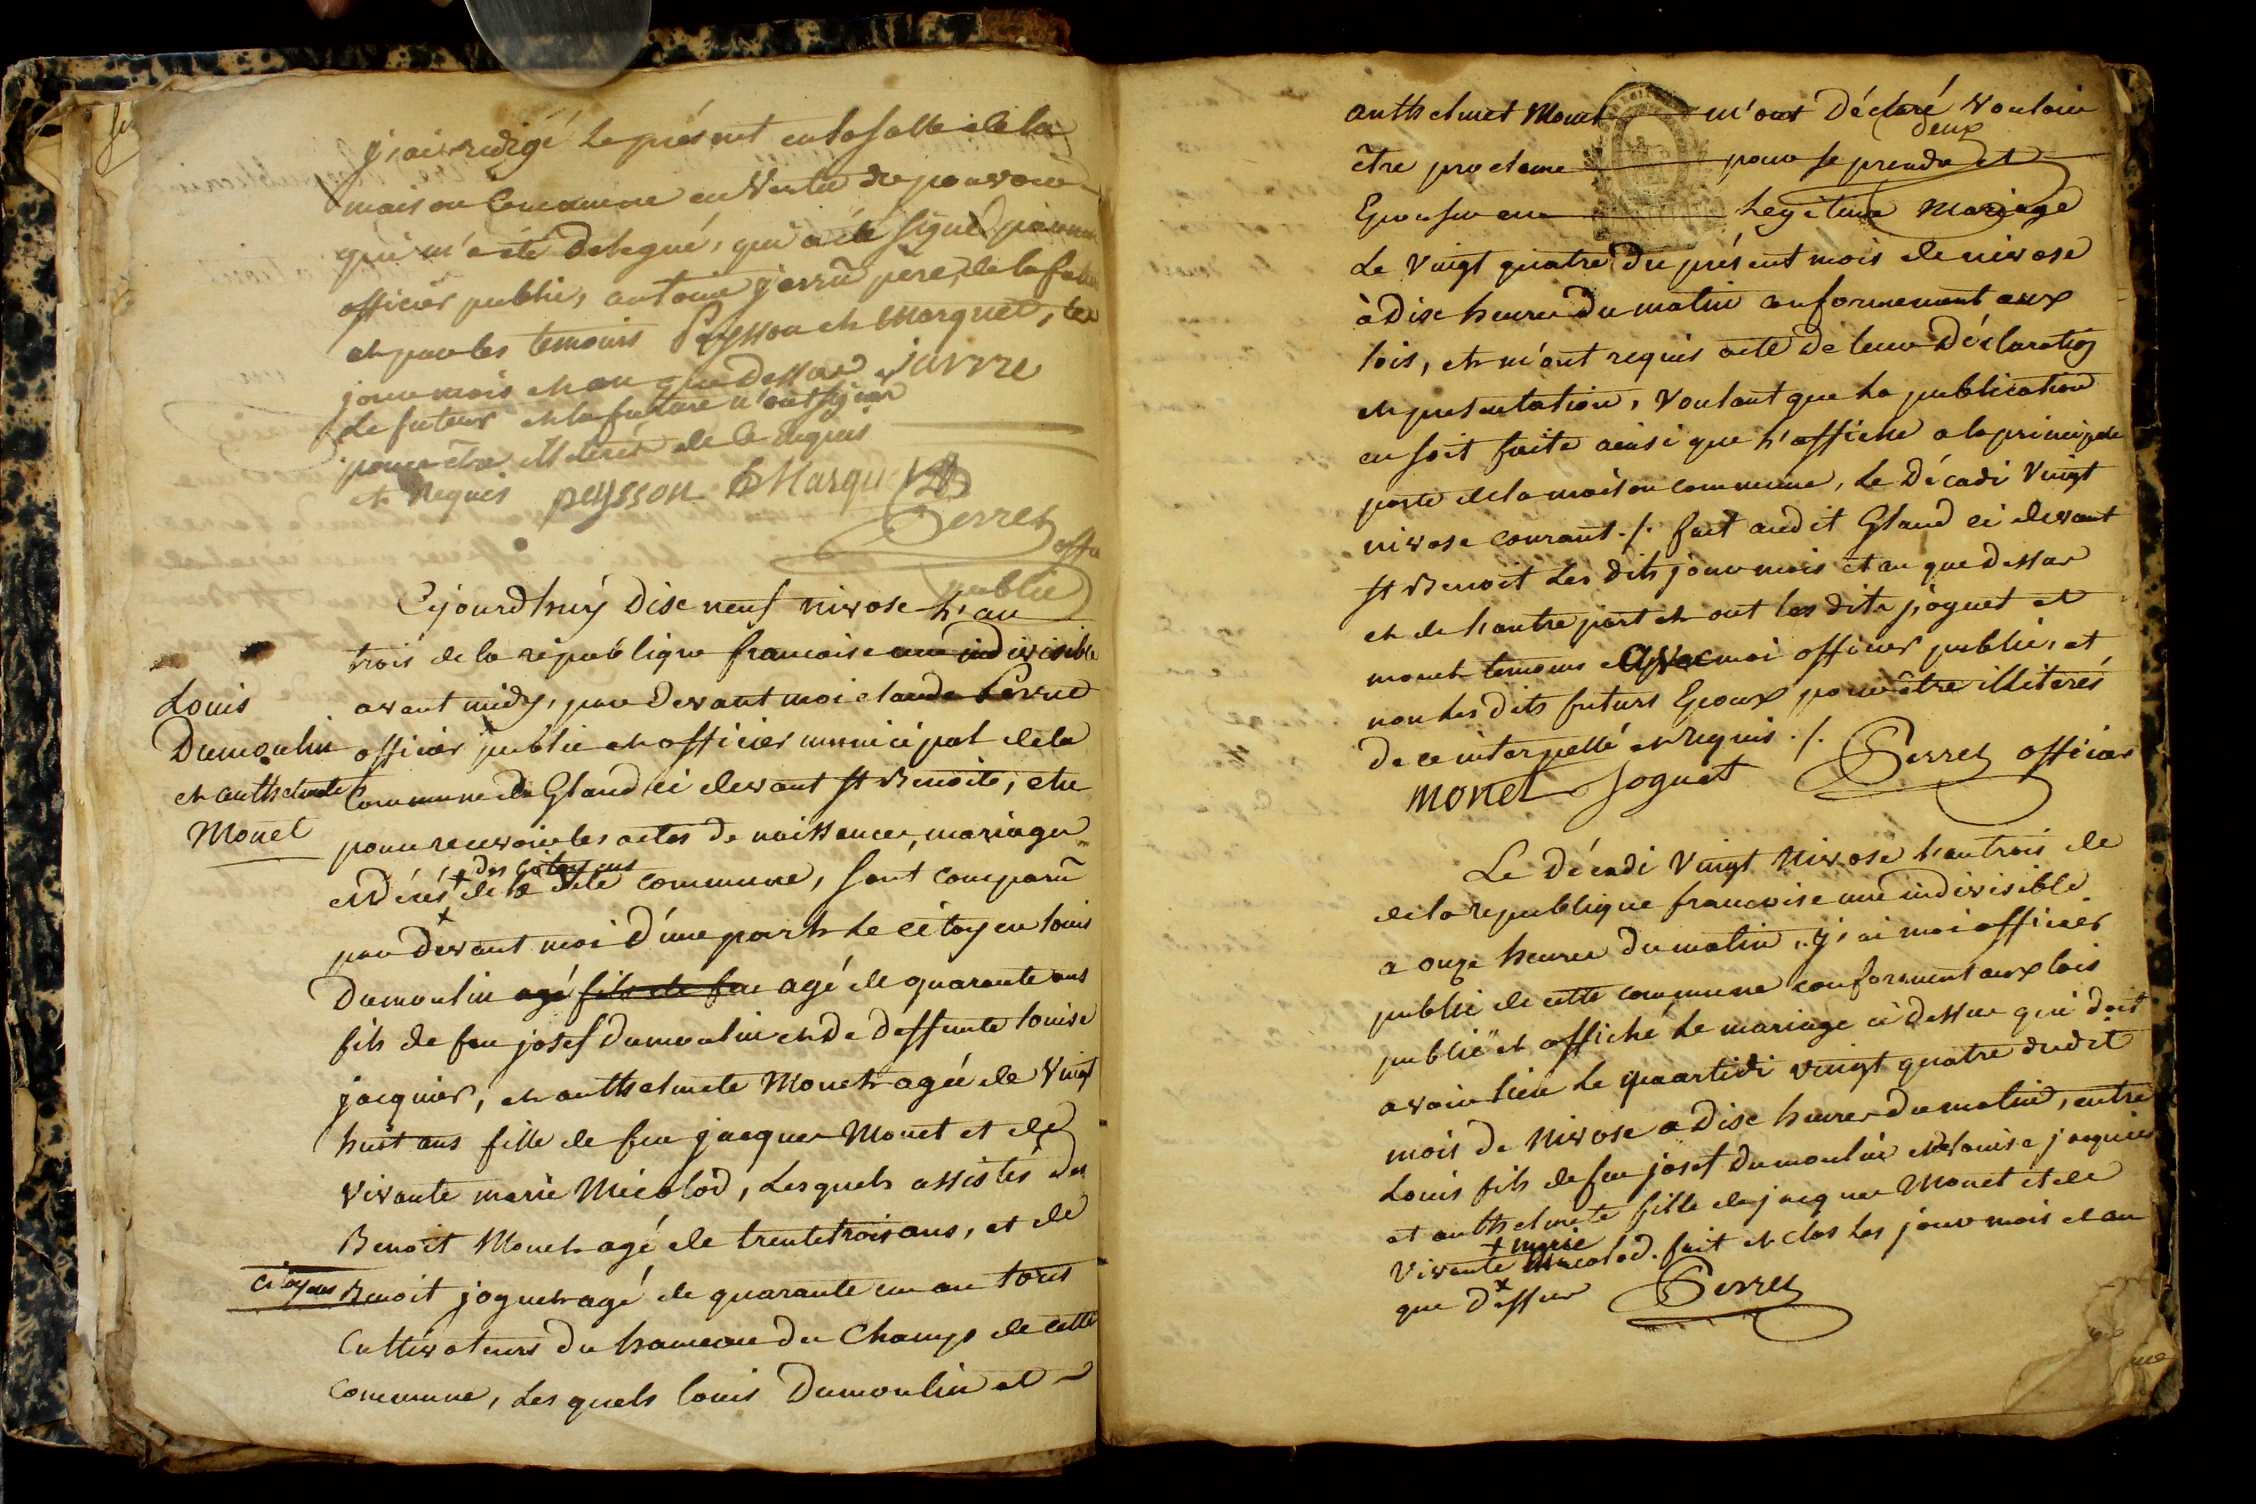 j'ai redigé le présent en la salle de la
maison Commune en Vertu du pouvoir
qui m'a été delegué, qui a été signé par moi
officier public, antoine jarru père, de la future
et par les temoins Peysson et Marquet, les
jour mois et an que dessus jarrre
Le futeur et la future n'ont signé
pour être illiterés de ce enquis
et Requis peysson B Marquet
Perret offer
public
Cejourdhuÿ Dise neuf nivose l'an
trois de la république francoise une indivisible
avant midÿ, par devant moi claude Perret
officier public et officier municipal de la
Commune de Gland ci devant st Benoite, elu
pour recevoir les actes de naissence, mariages
des Citoyens
et décés + de la dite commune, sont comparu
par devant moi d'une part le citoyen louis
Dumoulin agé fils de feu agé de quarante ans
fils de feu josef Dumoulin et de deffunte louise
jacquier, et anthelmete Monet agée de Vingt
huit ans fille de feu jacques Monet et de
Vivante marie Micolod, Lesquels assistés des
Benoit Monet agé de trente trois ans, et de
Citoyens Benoit joguet agé de quarante un an tous
Cultivateurs du hameau du Champs de cette
Commune, Les quels louis Dumoulin et
Louis
Dumoulin
et anthelmete
Monet
anthelmet Monet m'ont Déclaré Vouloir
deux
être proclame pour se prendre et
Epouser en Legitime Mariage
Le Vingt quatre du présent mois de nivose
à Dise heures du matin conformement aux
lois, et m'ont requis acte de leur Déclaration
et presentation, Voulant que la publication
en soit faite ainsi que l'affiche a la principale
porte de la maison commune, Le Décadi Vingt
nivose courant ./. fait audit Gland ci devant
st Benoit Les dits jour mois et an que dessus
et de l'autre part et ont les dits joguet et
monet temoins signé avec moi officier public, et
non Les dits futurs Epoux pour être illiterés
de ce interpellé et Requis ./.
Monet Joguet Perret officier
Le Décadi Vingt Nivose l'an trois de
de la republique francoise une indivisible
a onze heures du matin, j'ai moi officier
public de cette commune conforment aux lois
publié et affiché Le mariage ci dessus qui doit
avoir lieu Le quartidi vingt quatre dudit
mois de Nivose a dise heures du matin, entre
Louis fils de feu josef dumoulin et de louise jaquier
et anthelmete fille de jacques Monet et de
+ marie
Vivante Micolod. fait et clos Les jour mois et an
que dessus Perret